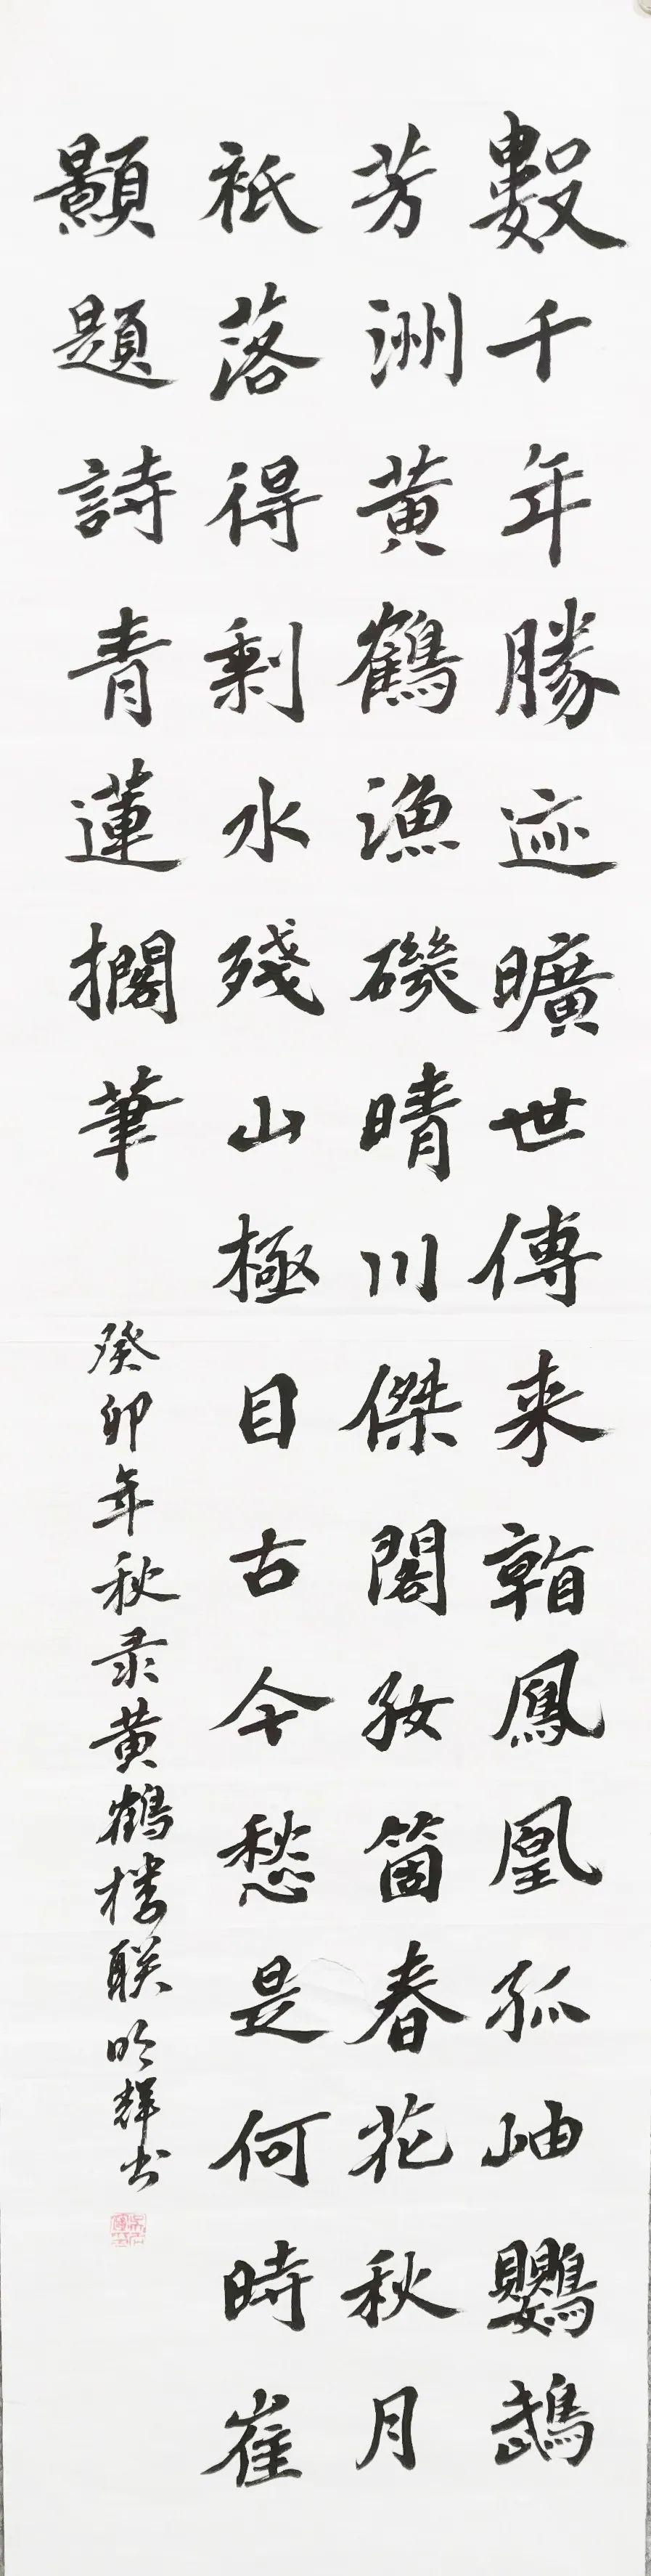 數千年勝迹曠世傳来看鳳凰孤岫鸚鵡
芳洲黄鶴漁磯晴川傑閣好箇春花秋月
祇落得剩水殘山極目古今愁是何時崔
顥題詩青蓮擱筆
癸卯年秋录黄鶴楼联明輝书